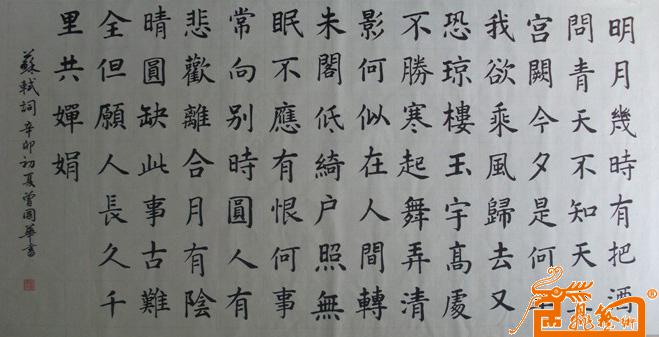 明月幾時有把酒
問青天不知天
宮闕今夕是何年
我欲乘風歸去又
恐瓊樓玉宇高處
不勝寒起舞弄清
影何似在人間轉
朱閣低綺户照無
眠不應有恨何事
常向别時圓人有
悲歡離合月有陰
晴圓缺此事古難
全但願人長久千
里共嬋娟
蘇軾詞辛卯初夏曾國華書